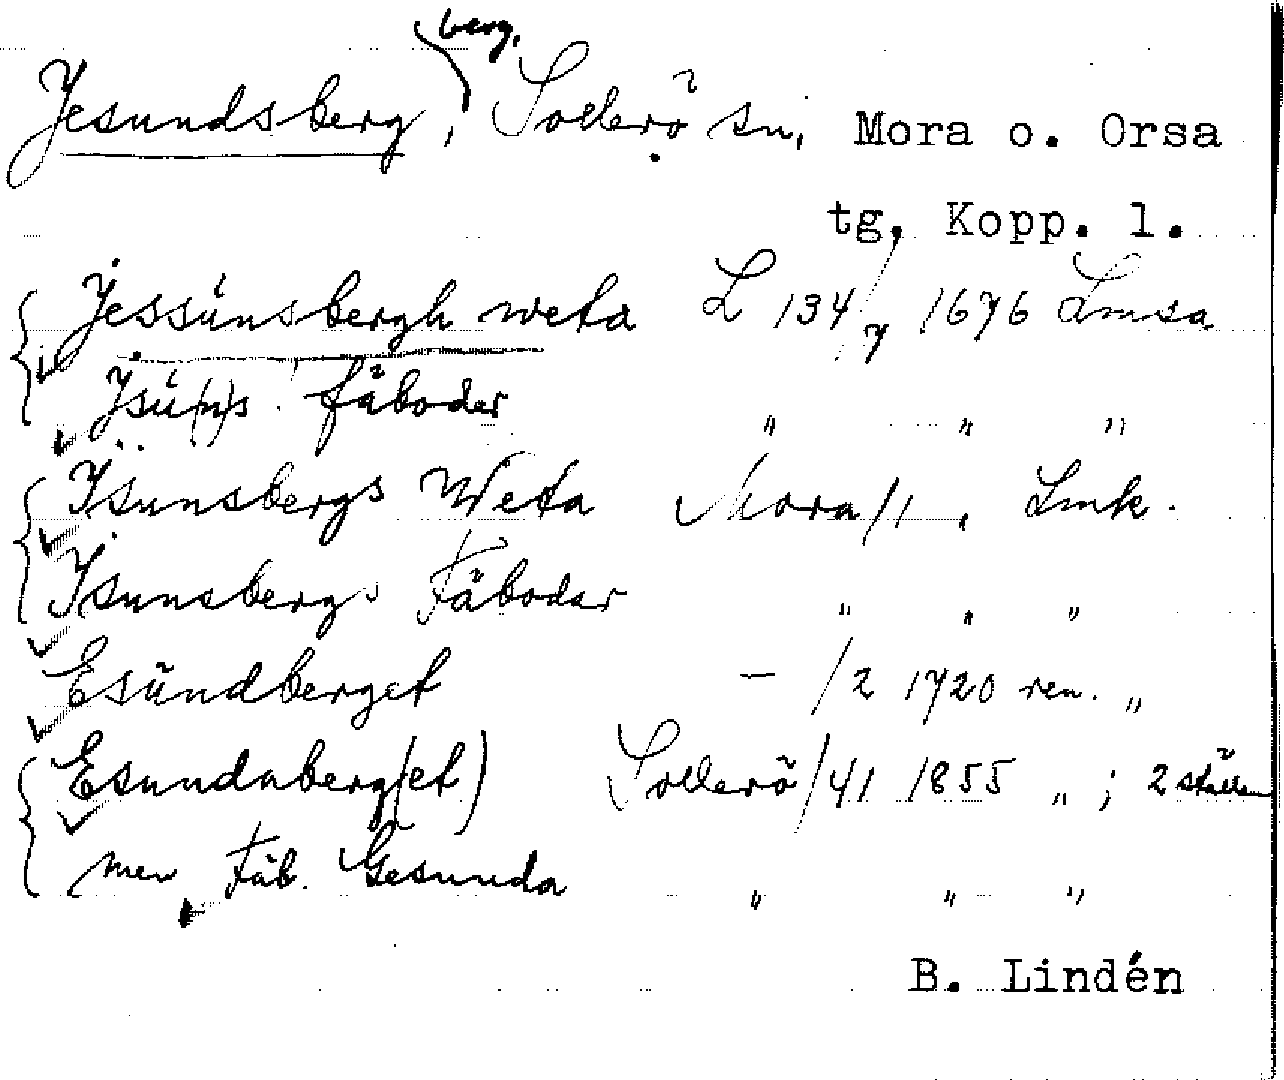 berg,
Jesundsberg, Sollerö sn, Mora o. Orsa
tg, Kopp. l.
Jessünsbergh weta L 134/7 1676 Lmsa
Jsü(n)s fäboder " " "
Ÿsunsbergs Weta Mora/1, Lmk.
Ÿsunsbergs Fäboder " " "
Esündberget — /2 1720 ren. "
Esundaberg(et) Sollerö/41 1855 " ; 2 ställen
men Fäb. Gesunda " " "
B. Lindén